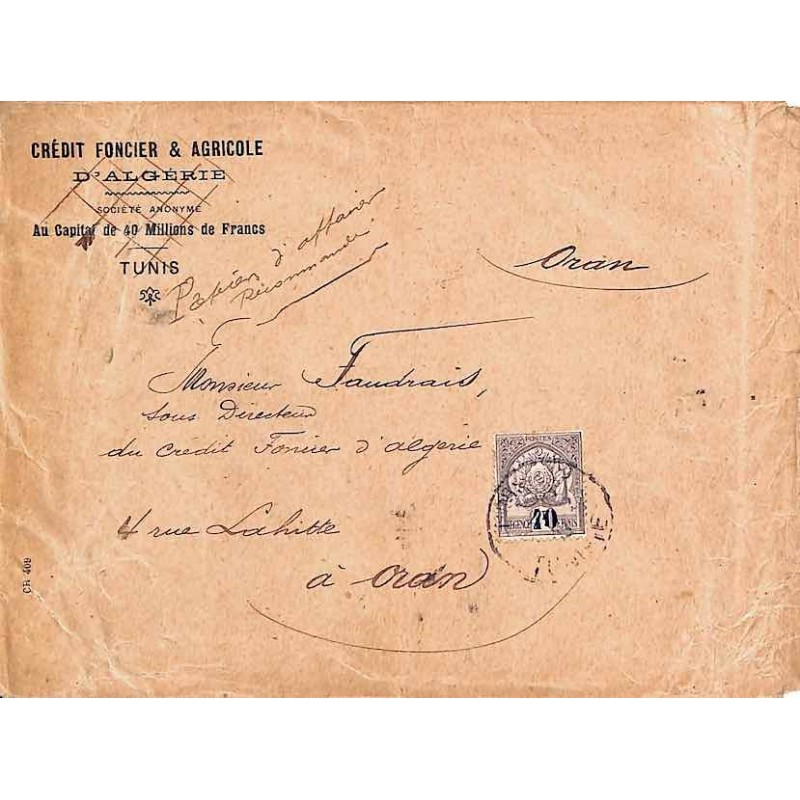 CRÉDIT FONCIER & AGRICOLE
D'ALGÉRIE
SOCIÉTÉ ANONYME
Au Capital de 40 Millions de Francs
TUNIS
Papiers d'affaires
Recommandé
Oran
Monsieur Faudrais,
Sous Directeur
du Crédit Foncier d'Algérie
4 rue Lahitte
à Oran
POSTES
70
CR 409